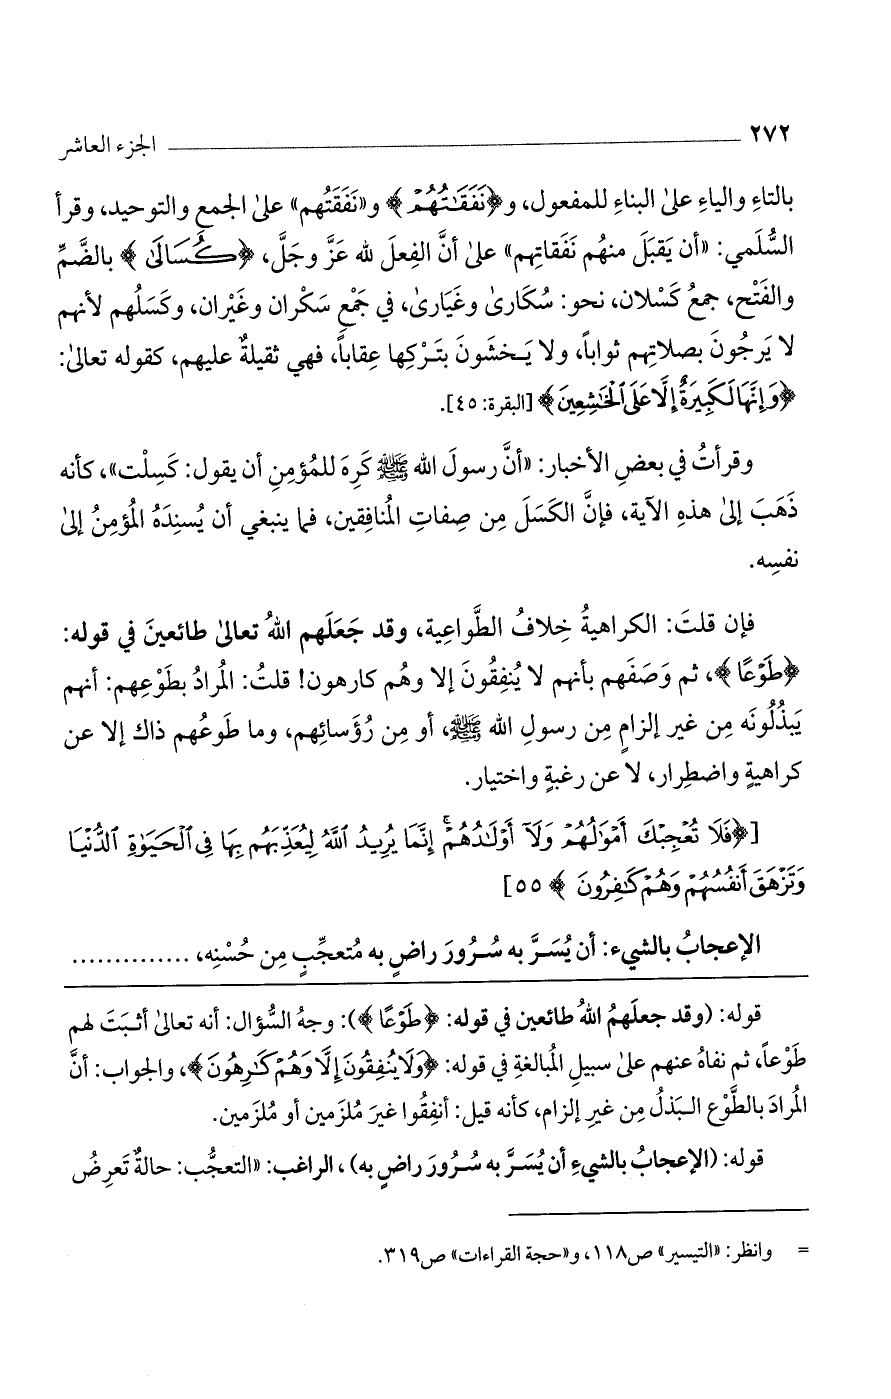 ٢٧٢ الجزء العاشر
بالتاءِ والياءِ علىٰ البناءِ للمفعول، و﴿نَفَقَـٰتُهُمْ﴾ و«نَفَقَتُهم» علىٰ الجمع والتوحيد، وقرأ
السُّلَمي: «أن يَقبَلَ منهُم نَفَقاتِهم» علىٰ أنَّ الفِعلَ لله عَزَّ وجَلَّ، ﴿كُسَالَىٰ﴾ بالضَّمِّ
والفَتْح، جمعُ كَسْلان، نحو: سُكارىٰ وغَيَارىٰ، في جَمْعِ سَكْران وغَيْران، وكَسَلُهم لأنهم
لا يَرجُونَ بصلاتِهم ثواباً، ولا يَخشَونَ بتَرْكِها عِقاباً، فهي ثقيلةٌ عليهم، كقوله تعالىٰ:
﴿وَإِنَّهَا لَكَبِيرَةٌ إِلَّا عَلَى ٱلْخَـٰشِعِينَ﴾ [البقرة: ٤٥].
وقرأتُ في بعضِ الأخبار: «أنَّ رسولَ الله ﷺ كَرِهَ للمُؤمِنِ أن يقول: كَسِلْت»، كأنه
ذَهَبَ إلىٰ هذهِ الآية، فإنَّ الكَسَلَ مِن صِفاتِ المُنافِقين، فما ينبغي أن يُسنِدَهُ المُؤمِنُ إلىٰ
نفسِه.
فإن قلتَ: الكراهيةُ خِلافُ الطَّواعِية، وقد جَعَلَهم اللهُ تعالىٰ طائعينَ في قوله:
﴿طَوْعًا﴾، ثم وَصَفَهم بأنهم لا يُنفِقُونَ إلا وهُم كارهون! قلتُ: المُرادُ بطَوْعِهم: أنهم
يَبذُلُونَه مِن غير إلزامٍ مِن رسولِ الله ﷺ، أو مِن رُؤَسائِهم، وما طَوعُهم ذاك إلا عن
كراهيةٍ واضطِرار، لا عن رغبةٍ واختيار.
[﴿فَلَا تُعْجِبْكَ أَمْوَٰلُهُمْ وَلَآ أَوْلَـٰدُهُمْ ۚ إِنَّمَا يُرِيدُ ٱللَّهُ لِيُعَذِّبَهُم بِهَا فِى ٱلْحَيَوٰةِ ٱلدُّنْيَا
وَتَزْهَقَ أَنفُسُهُمْ وَهُمْ كَـٰفِرُونَ﴾ ٥٥]
الإعجابُ بالشيء: أن يُسَرَّ به سُرُورَ راضٍ به مُتعجِّبٍ مِن حُسْنِه، ..............
قوله: (وقد جعلَهمُ اللهُ طائعين في قوله: ﴿طَوْعًا﴾): وجهُ السُّؤال: أنه تعالىٰ أثبَتَ لهم
طَوْعاً، ثم نفاهُ عنهم علىٰ سبيلِ المُبالغةِ في قوله: ﴿وَلَا يُنفِقُونَ إِلَّا وَهُمْ كَـٰرِهُونَ﴾، والجواب: أنَّ
المُرادَ بالطَّوْع البَذلُ مِن غيرِ إلزام، كأنه قيل: أنفِقُوا غيرَ مُلزَمين أو مُلزَمين.
قوله: (الإعجابُ بالشيءِ أن يُسَرَّ به سُرُورَ راضٍ به)، الراغب: «التعجُّب: حالةٌ تَعرِضُ
= وانظر: «التيسير» ص١١٨، و«حجة القراءات» ص٣١٩.